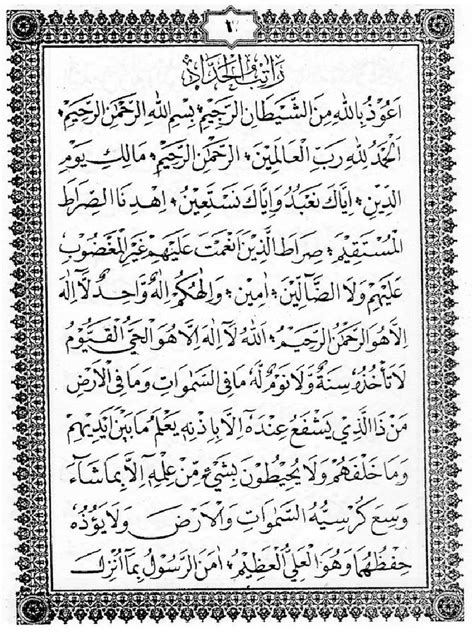 ١
راتب الحداد
اَعُوْذُ بِاللهِ مِنَ الشَّيْطَانِ الرَّجِيْمِ بِسْمِ اللهِ الرَّحْمٰنِ الرَّحِيْمِ
اَلْحَمْدُ لِلّٰهِ رَبِّ الْعَالَمِيْنَ الرَّحْمٰنِ الرَّحِيْمِ مَالِكِ يَوْمِ
الدِّيْنِ اِيَّاكَ نَعْبُدُ وَاِيَّاكَ نَسْتَعِيْنُ اِهْدِنَا الصِّرَاطَ
الْمُسْتَقِيْمَ صِرَاطَ الَّذِيْنَ اَنْعَمْتَ عَلَيْهِمْ غَيْرِ الْمَغْضُوْبِ
عَلَيْهِمْ وَلَا الضَّآلِّيْنَ اٰمِيْن وَاِلٰهُكُمْ اِلٰهٌ وَّاحِدٌ لَآ اِلٰهَ
اِلَّا هُوَ الرَّحْمٰنُ الرَّحِيْمُ اَللهُ لَآ اِلٰهَ اِلَّا هُوَ الْحَيُّ الْقَيُّوْمُ
لَا تَأْخُذُهُ سِنَةٌ وَّلَا نَوْمٌ لَهُ مَا فِى السَّمٰوَاتِ وَمَا فِى الْاَرْضِ
مَنْ ذَا الَّذِيْ يَشْفَعُ عِنْدَهُ اِلَّا بِاِذْنِهِ يَعْلَمُ مَا بَيْنَ اَيْدِيْهِمْ
وَمَا خَلْفَهُمْ وَلَا يُحِيْطُوْنَ بِشَيْءٍ مِّنْ عِلْمِهِ اِلَّا بِمَا شَآءَ
وَسِعَ كُرْسِيُّهُ السَّمٰوَاتِ وَالْاَرْضَ وَلَا يَؤُدُهُ
حِفْظُهُمَا وَهُوَ الْعَلِيُّ الْعَظِيْمُ اٰمَنَ الرَّسُوْلُ بِمَآ اُنْزِلَ